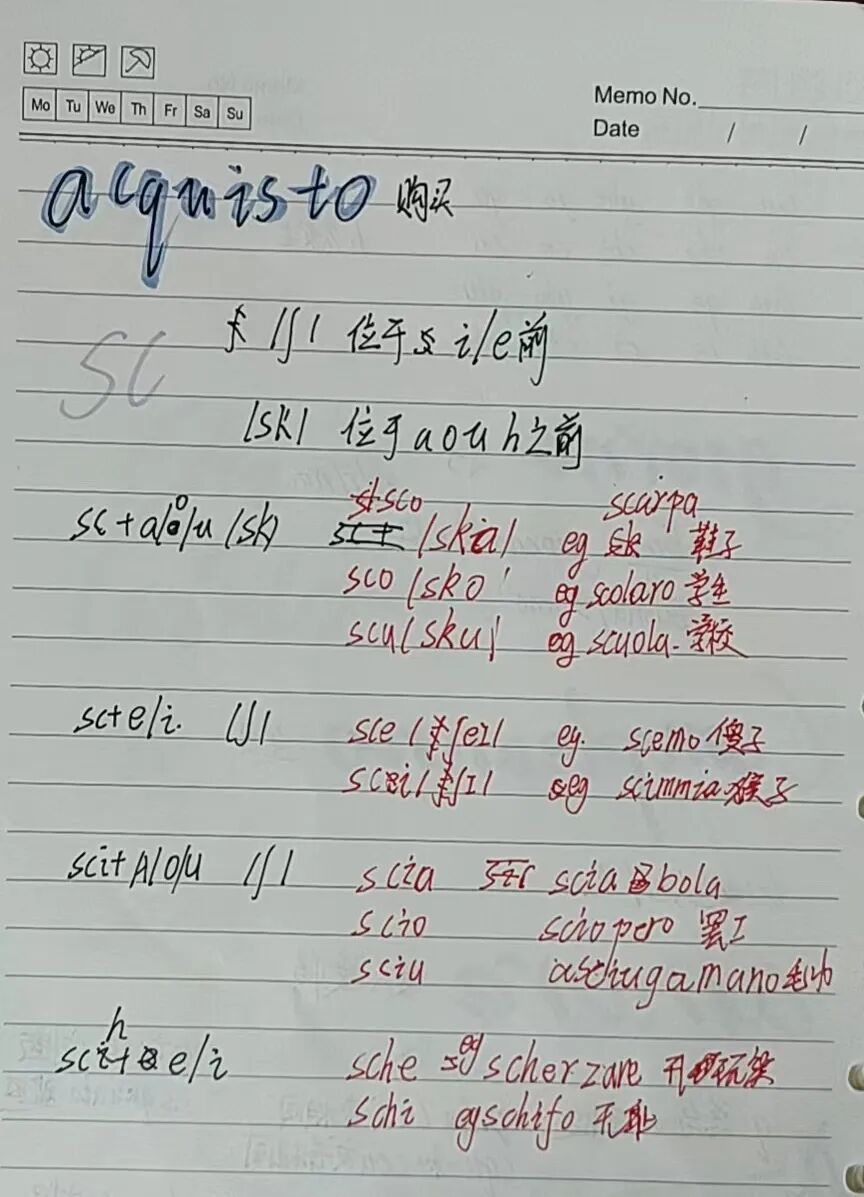 Mo Tu We Th Fr Sa Su
Memo No.
Date / /
acquisto 购买
sc
/ʃ/ 位于 i/e前
/sk/ 位于 a o u h之前
sc+a/o/u /sk/ sco /ska/ eg scarpa 鞋子
sco /sko/ eg scolaro 学生
scu /sku/ eg scuola 学校
sc+e/i. /ʃ/ sce /ʃeI/ eg. scemo 傻子
sci /ʃI/ eg scimmia 猴子
sci+A/O/U /ʃ/ scia scia bola
scio sciopero 罢工
sciu asciugamano 毛巾
sch+e/i sche eg scherzare 开玩笑
schi eg schifo 无耻